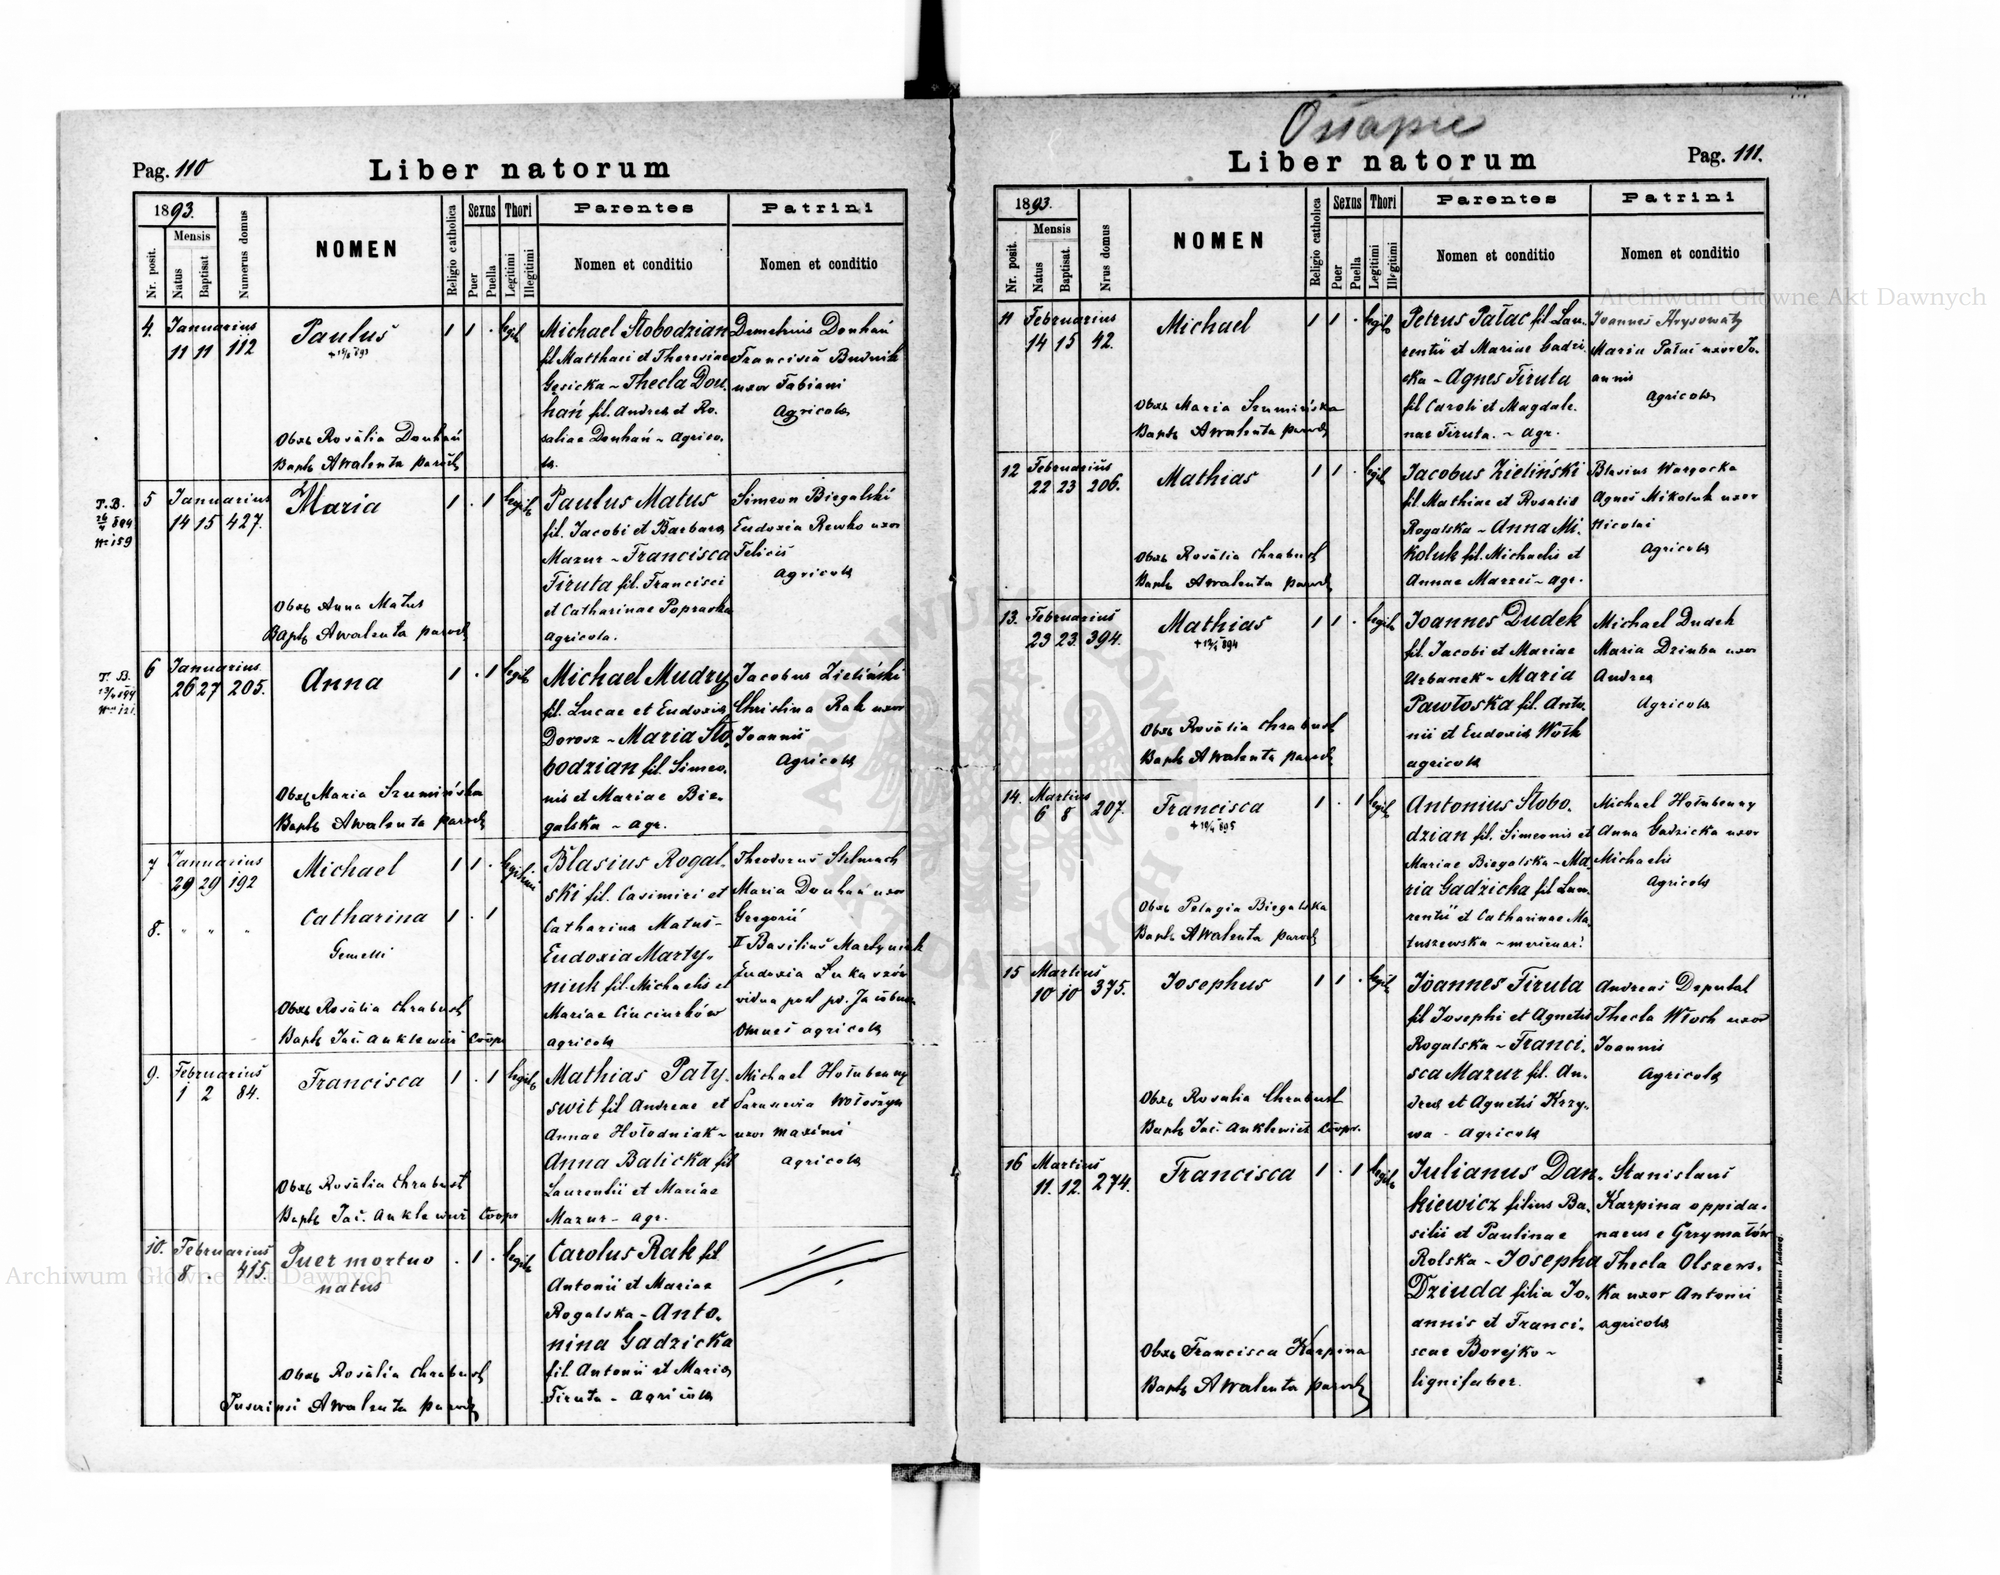 Pag. 110
Liber natorum
1893.
Nr. posit.
Mensis
Natus
Baptisat
Numerus domus
NOMEN
Religio catholica
Sexus
Puer
Puella
Thori
Legitimi
Illegitimi
Parentes
Nomen et conditio
Patrini
Nomen et conditio
4. Januarius
11 11 112
Paulus
1 1 . legit
Obst Rosalia Douhań
Bapt A Walenta paroch
Michael Słobodzian
fil Matthaei et Theresiae
Gęsicka ~ Thecla Dou.
hań fil. Andrea et Ro.
saliae Douhań ~ Agrico.
la.
Demetrius Douhań
Francisca Budnik
uxor Fabiani
Agricola
T. B.
26/4 894
Nr 159
5 Januarius
14 15 427.
Maria
1 . 1 legit
Obst Anna Matus
Bapt A Walenta paroch
Paulus Matus
fil. Jacobi et Barbara
Mazur ~ Francisca
Firuta fil. Francisci
et Catharinae Popravka
Agricola.
Simeon Biegalski
Eudoxia Rewko uxor
Felicis
Agricola
T. B.
6 Januarius
26 27 205.
Anna
1 . 1 legit
Obst Maria Szumińska
Bapt A Walenta paroch
Michael Mudry
fil. Lucae et Eudoxia
Dorosz ~ Maria Sło.
bodzian fil. Simeo.
nis et Mariae Bie.
galska ~ agr.
Jacobus Zieliński
Christina Rak uxor
Joannis
Agricola
7 Januarius
29 29 192
Michael
1 1 . legitimi
8. " " "
Catharina 1 . 1
Gemelli
Obst Rosalia Chrabust
Bapt Jac. Anklewicz Coop
Blasius Rogal.
ski fil. Casimiri et
Catharina Matus ~
Eudoxia Marty.
niuk fil. Michaelis et
Mariae Ciuciurków
agricola
Theodorus Stelmach
Maria Douhań uxor
Gregorii
II Basilius Martyniuk
Eudoxia Luka uxor
vidua post
Omnes agricola
9. Februarius
1 2 84.
Francisca
1 . 1 legit
Obst Rosalia Chrabust
Bapt Jac. Anklewicz Coop
Mathias Paty.
swit fil Andreae et
Annae Hołodniak ~
Anna Balicka fil
Laurentii et Mariae
Mazur ~ agr.
Michael Hołubenny
Parascevia Wołoszyn
uxor Maximi
Agricola
10. Februarius
8 . 415.
Puer mortuo
natus
. 1 . legit
Obst Rosalia Chrabust
Inscripsi A Walenta paroch
Carolus Rak fil
Antonii et Mariae
Rogalska ~ Anto.
nina Gadzicka
fil. Antonii et Maria
Firuta ~ Agricola
Ostapie
Liber natorum
Pag. 111.
1893.
Nr. posit.
Mensis
Natus
Baptisat.
Nrus domus
NOMEN
Religio catholica
Sexus
Puer
Puella
Thori
Legitimi
Illegitimi
Parentes
Nomen et conditio
Patrini
Nomen et conditio
11 Februarius
14 15 42.
Michael
1 1 . legit
Obst Maria Szumińska
Bapt A Walenta paroch
Petrus Pałac fil Lau.
rentii et Mariae Gadzi.
cka ~ Agnes Firuta
fil Caroli et Magdale.
nae Firuta. ~ Agr.
Joannes Krysowaty
Maria Pałac uxor Jo.
annis
Agricola
12 Februarius
22 23 206.
Mathias
1 1 . legit
Obst Rosalia Chrabust
Bapt A Walenta paroch
Jacobus Zieliński
fil. Mathiae et Rosalia
Rogalska ~ Anna Mi.
koluk fil. Michaelis et
Annae Marzei ~ agr.
Blasius Wargocka
Agnes Mikoluk uxor
Nicolai
Agricola
13. Februarius
23 23. 394.
Mathias
1 1 . legit
Obst Rosalia Chrabust
Bapt A Walenta paroch
Joannes Dudek
fil. Jacobi et Mariae
Urbanek ~ Maria
Pawłoska fil. Anto.
nii et Eudoxia Wołk
agricola
Michael Dudek
Maria Dziuba uxor
Andrea
Agricola
14. Martius
6 8 207.
Francisca
1 . 1 legit
Obst Pelagia Biegalska
Bapt A Walenta paroch
Antonius Słobo.
dzian fil. Simeonis et
Mariae Biegalska ~ Ma.
ria Gadzicka fil Lau.
rentii et Catharinae Ma.
tuszewska ~
Michael Hołubenny
Anna Gadzicka uxor
Michaelis
Agricola
15 Martius
10 10 375.
Josephus
1 1 . legit
Obst Rosalia Chrabust
Bapt Jac. Anklewicz Coopr.
Joannes Firuta
fil Josephi et Agnetis
Rogalska ~ Franci.
sca Mazur fil. An.
drea et Agnetis Krzy.
wa - Agricola
Andreas Deputat
Thecla Włoch uxor
Joannis
Agricola
16 Martius
11. 12. 274.
Francisca
1 . 1 legit
Obst Francisca Karpina
Bapt A Walenta paroch
Julianus Dan.
kiewicz filius Ba.
silii et Paulinae
Rolska ~ Josepha
Dziuda filia Jo.
annis et Franci.
scae Borejko ~
lignifaber.
Stanislaus
Karpina oppida.
naeus e Grzymałów
Thecla Olszews.
ka uxor Antonii
agricola
Drukiem i nakładem Drukarni Ludowej.
Archiwum Główne Akt Dawnych
Archiwum Główne Akt Dawnych